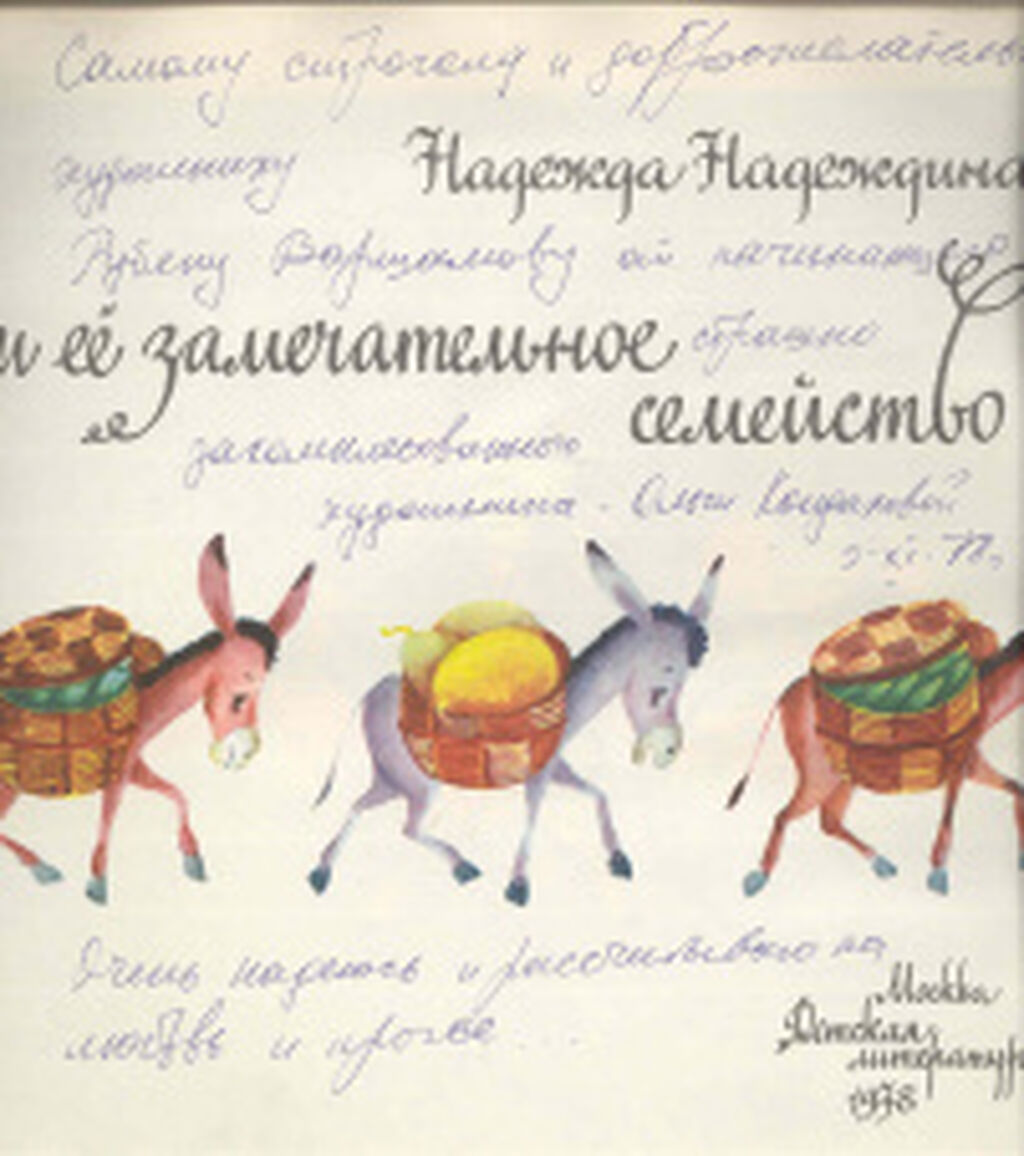 Самому строгому и доброжелатель
художнику
Надежда Надеждина
Рубену Варшамову от начинающего
и её замечательное
страшно
семейство
закомплексованного
художника - Ольги Кондаковой
Очень надеюсь и рассчитываю на
любовь и прочее...
Москва
Детская
литератур
1978